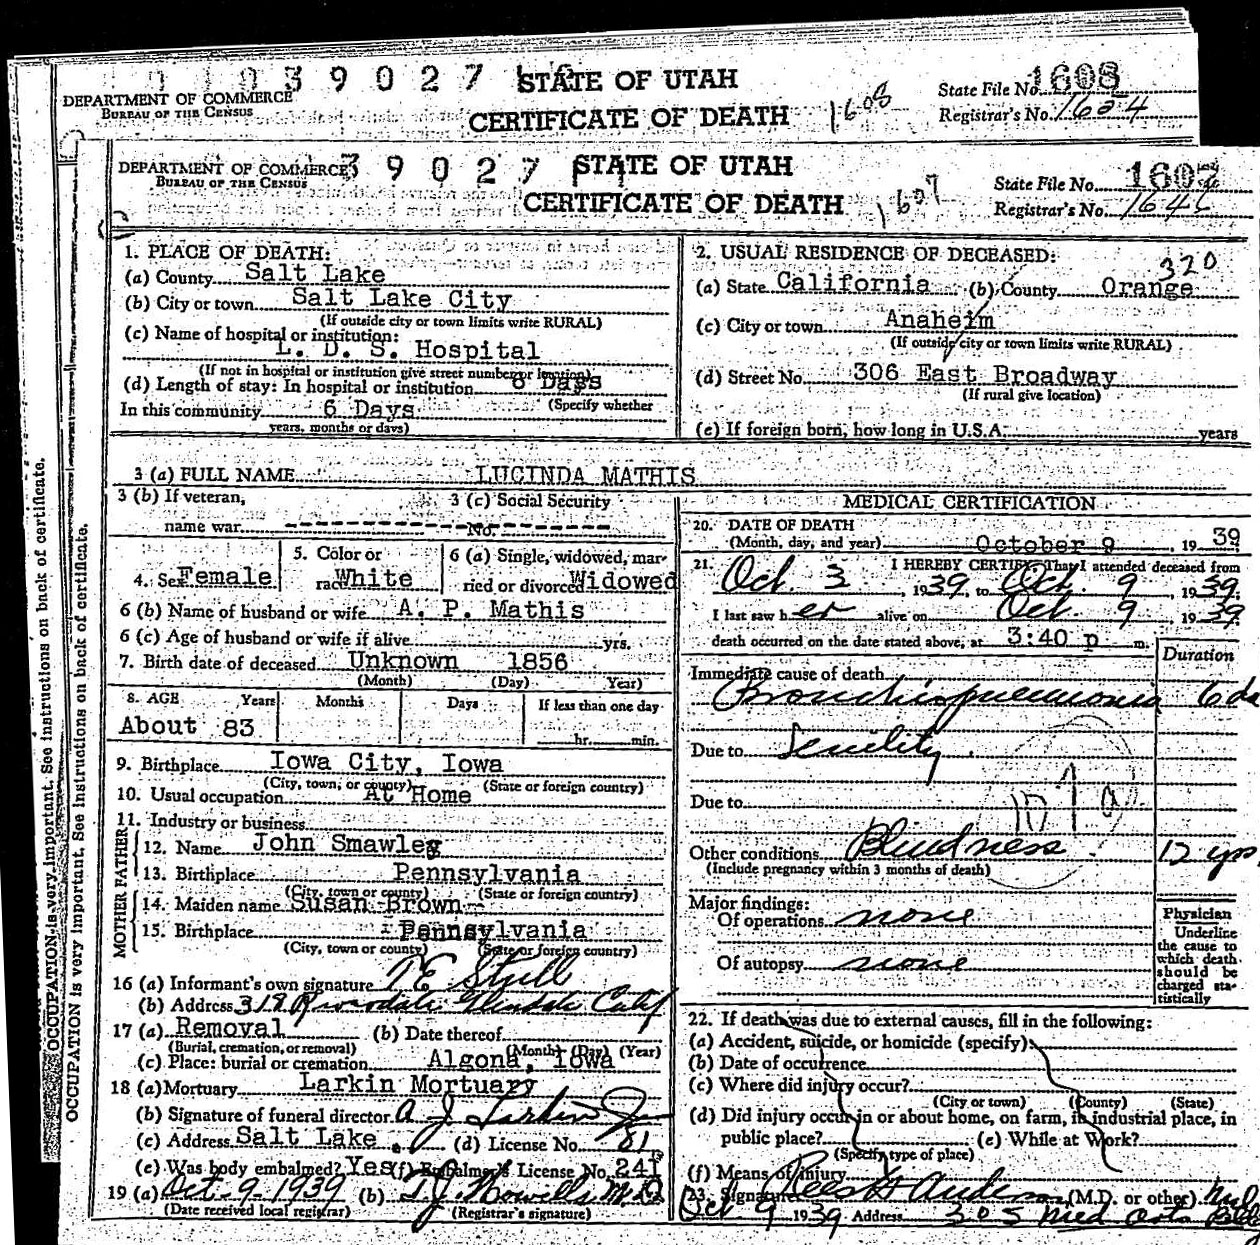 39027
STATE OF UTAH
DEPARTMENT OF COMMERCE
BUREAU OF THE CENSUS
CERTIFICATE OF DEATH
1608
State File No. 1608
Registrar's No. 1624
DEPARTMENT OF COMMERCE
BUREAU OF THE CENSUS
39027
STATE OF UTAH
CERTIFICATE OF DEATH
1607
State File No. 1607
Registrar's No.
1. PLACE OF DEATH:
(a) County Salt Lake
(b) City or town Salt Lake City
(If outside city or town limits write RURAL)
(c) Name of hospital or institution:
L. D. S. Hospital
(If not in hospital or institution give street number or location)
(d) Length of stay: In hospital or institution 6 Days
(Specify whether
In this community 6 Days
years, months or days)
2. USUAL RESIDENCE OF DECEASED:
320
(a) State California (b) County Orange
(c) City or town Anaheim
(If outside city or town limits write RURAL)
(d) Street No. 306 East Broadway
(If rural give location)
(e) If foreign born, how long in U.S.A. years
3 (a) FULL NAME LUCINDA MATHIS
3 (b) If veteran, 3 (c) Social Security
name war No.
4. Sex Female 5. Color or race White 6 (a) Single, widowed, married or divorced Widowed
6 (b) Name of husband or wife A. P. Mathis
6 (c) Age of husband or wife if alive yrs.
7. Birth date of deceased Unknown 1856
(Month) (Day) Year)
8. AGE Years Months Days If less than one day
About 83 hr. min.
9. Birthplace Iowa City, Iowa
(City, town, or county) (State or foreign country)
10. Usual occupation At Home
11. Industry or business
FATHER
12. Name John Smawleg
13. Birthplace Pennsylvania
(City, town or county) (State or foreign country)
MOTHER
14. Maiden name Susan Brown
15. Birthplace Pennsylvania
(City, town or county) (State or foreign country)
16 (a) Informant's own signature
(b) Address Glendale Calif
17 (a) Removal (b) Date thereof
(Burial, cremation, or removal) (Month) (Day) (Year)
(c) Place: burial or cremation Algona, Iowa
18 (a) Mortuary Larkin Mortuary
(b) Signature of funeral director A J Larkin
(c) Address Salt Lake (d) License No. 81
(e) Was body embalmed? Yes (f) Embalmer's License No. 241
19 (a) Oct-9-1939 (b) T.J. Howells M.D.
(Date received local registrar) (Registrar's signature)
MEDICAL CERTIFICATION
20. DATE OF DEATH
(Month, day, and year) October 9, 1939
21. I HEREBY CERTIFY, That I attended deceased from
Oct. 3, 1939, to Oct. 9, 1939;
I last saw her alive on Oct 9 1939
death occurred on the date stated above, at 3:40 p m.
Duration
Immediate cause of death
Bronchiopneumonia 6 da
Due to Senility.
Due to
Other conditions Blindness 12 yrs
(Include pregnancy within 3 months of death)
Major findings:
Of operations none
Of autopsy none
Physician
Underline the cause to which death should be charged statistically
22. If death was due to external causes, fill in the following:
(a) Accident, suicide, or homicide (specify)
(b) Date of occurrence
(c) Where did injury occur?
(City or town) (County) (State)
(d) Did injury occur in or about home, on farm, in industrial place, in
public place? (e) While at Work?
(Specify type of place)
(f) Means of injury
23. Signature (M.D. or other)
Oct 9 1939 Address 305 Med Arts Bldg
OCCUPATION is very important. See instructions on back of certificate.
OCCUPATION is very important. See instructions on back of certificate.